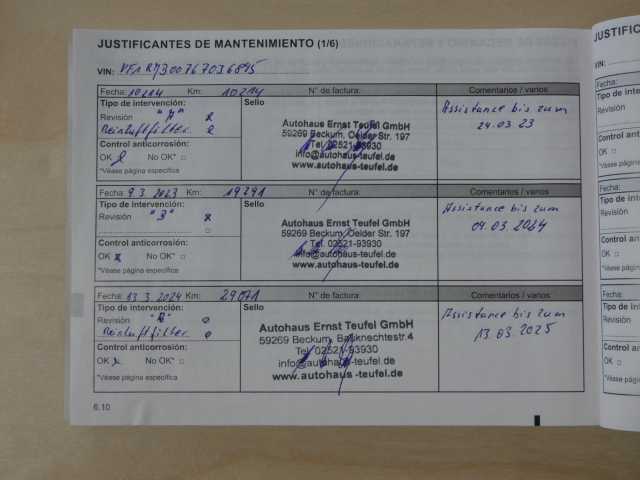 JUSTIFICANTES DE MANTENIMIENTO (1/6)
VIN:
Fecha: Km: 10214 N° de factura: Comentarios / varios
Tipo de intervención: Sello
Revisión "A"
Reinluftfilter
Control anticorrosión:
OK No OK*
*Véase página específica
Autohaus Ernst Teufel GmbH
59269 Beckum, Oelder Str. 197
Tel. 02521-93930
info@autohaus-teufel.de
www.autohaus-teufel.de
Assistance bis zum
24.03.23
Fecha: 9.3.2023 Km: 19291 N° de factura: Comentarios / varios
Tipo de intervención: Sello
Revisión "B"
Control anticorrosión:
OK No OK*
*Véase página específica
Autohaus Ernst Teufel GmbH
59269 Beckum, Oelder Str. 197
Tel. 02521-93930
info@autohaus-teufel.de
www.autohaus-teufel.de
Assistance bis zum
09.03.2024
Fecha: 13.3.2024 Km: 29071 N° de factura: Comentarios / varios
Tipo de intervención: Sello
Revisión
Reinluftfilter
Control anticorrosión:
OK No OK*
*Véase página específica
Autohaus Ernst Teufel GmbH
59269 Beckum,
Tel. 02521-93930
info@autohaus-teufel.de
www.autohaus -teufel.de
Assistance bis zum
13.03.2025
6.10
VIN:
Fecha:
Revisión
OK
Fecha:
Revisión
OK
Fecha:
Revisión
OK